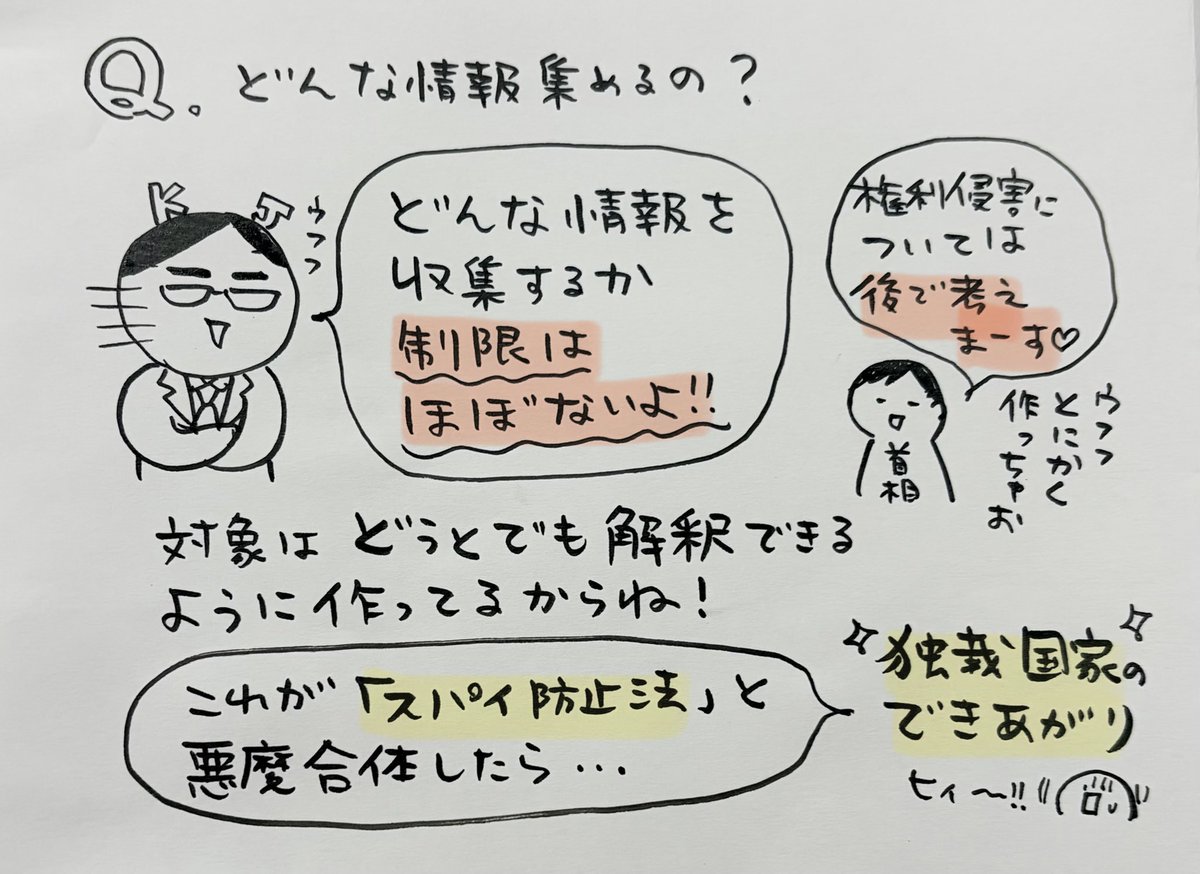 Q. どんな情報集めるの？
K J
ウフフ
どんな情報を
収集するか
制限は
ほぼないよ!!
権利侵害に
ついては
後で考え
まーす♡
首相
ウフフ
とにかく
作っちゃお
対象は どうとでも解釈できる
ように作ってるからね！
これが「スパイ防止法」と
悪魔合体したら…
独裁国家の
できあがり
ヒィ〜!!